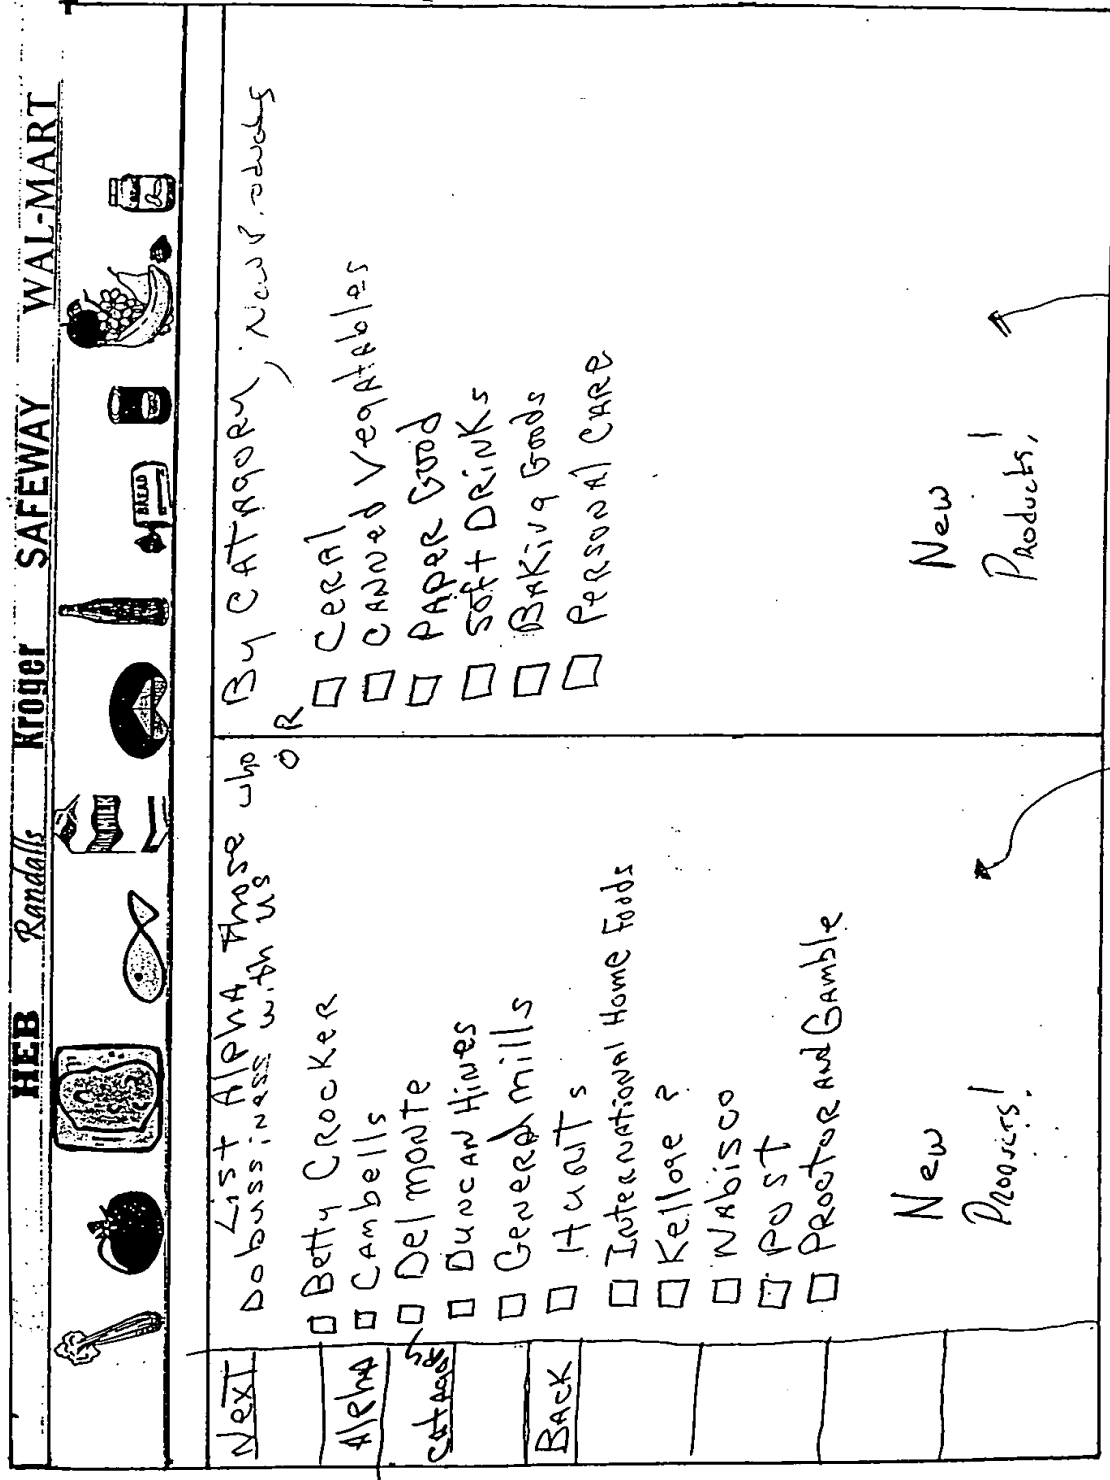 HEB Randalls Kroger SAFEWAY WAL-MART
MILK
BREAD
Next
Alpha
Back
List Alpha Those who
Do bussiness with us
Betty Crocker
Cambells
Del monte
Duncan Hines
General mills
Hunts
International Home Foods
Kelloge ?
Nabisco
Post
Proctor And Gamble
New
Products!
OR
By Catagory, New Products
Ceral
Canned Vegatables
Paper Good
Soft Drinks
Baking Goods
Personal Care
New
Products!